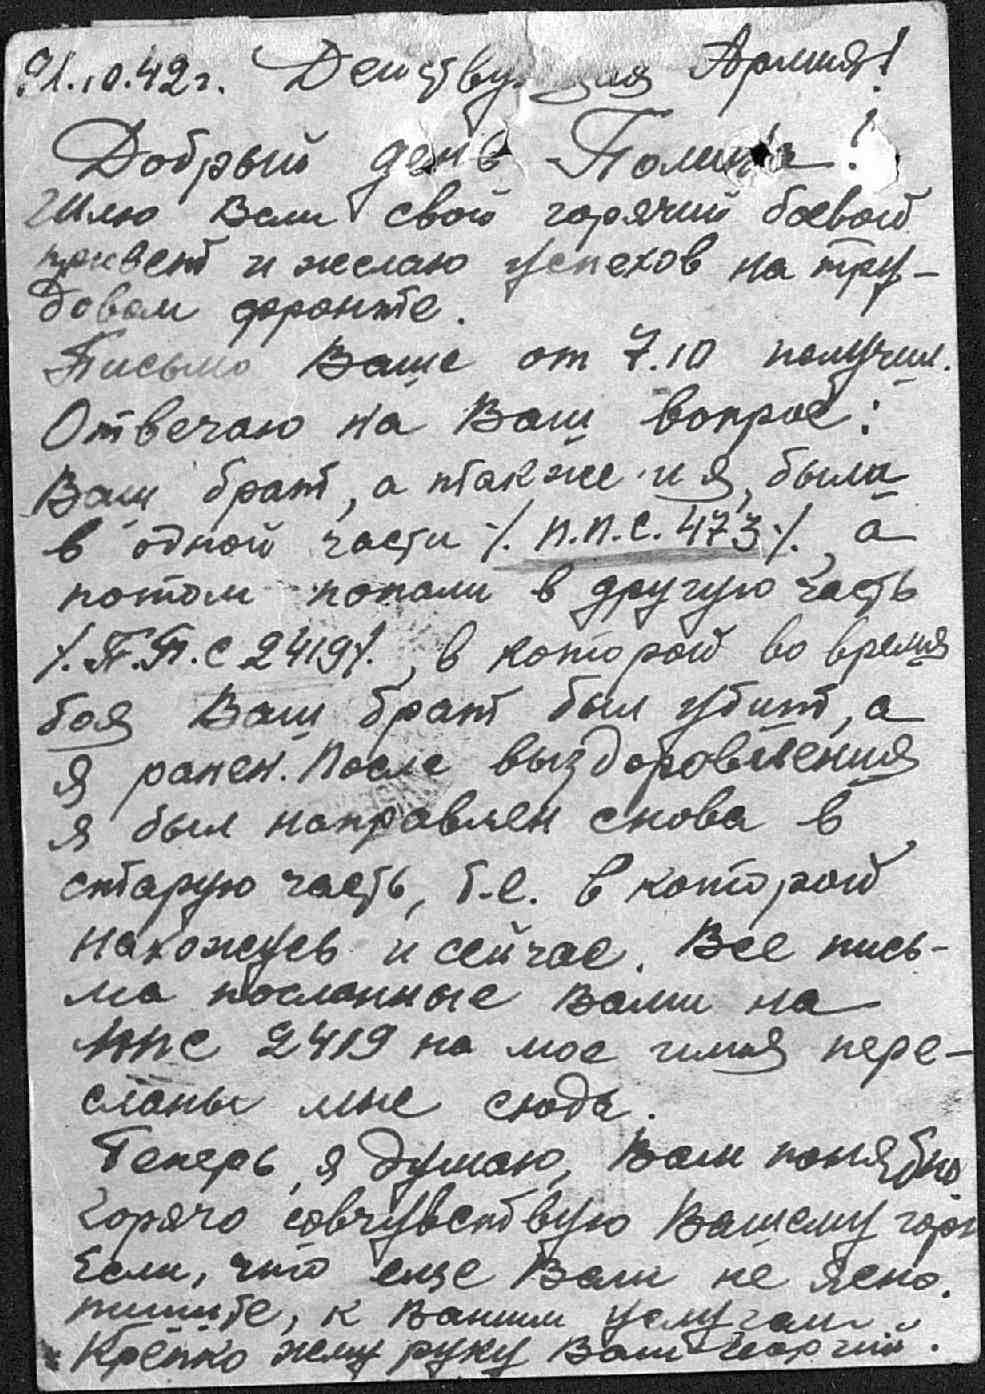 21.10.42 г. Действующая Армия!
Добрый день Полина!
Шлю Вам свой горячий боевой
привет и желаю успехов на тру-
довом фронте.
Письмо Ваше от 7.10 получил.
Отвечаю на Ваш вопрос:
Ваш брат, а также и я, были
в одной части /. П.П.С. 473 /. , а
потом попали в другую часть
/. П.П.С 2419 /. , в которой во время
боя Ваш брат был убит, а
я ранен. После выздоровления
я был направлен снова в
старую часть, т.е. в которой
нахожусь и сейчас. Все пись-
ма посланные Вами на
ППС 2419 на мое имя пере-
сланы мне сюда.
Теперь, я думаю, Вам понятно.
Горячо сочувствую Вашему горю
Если, что еще Вам не ясно.
пишите, к Вашим услугам
Крепко жму руку Ваш Георгий.